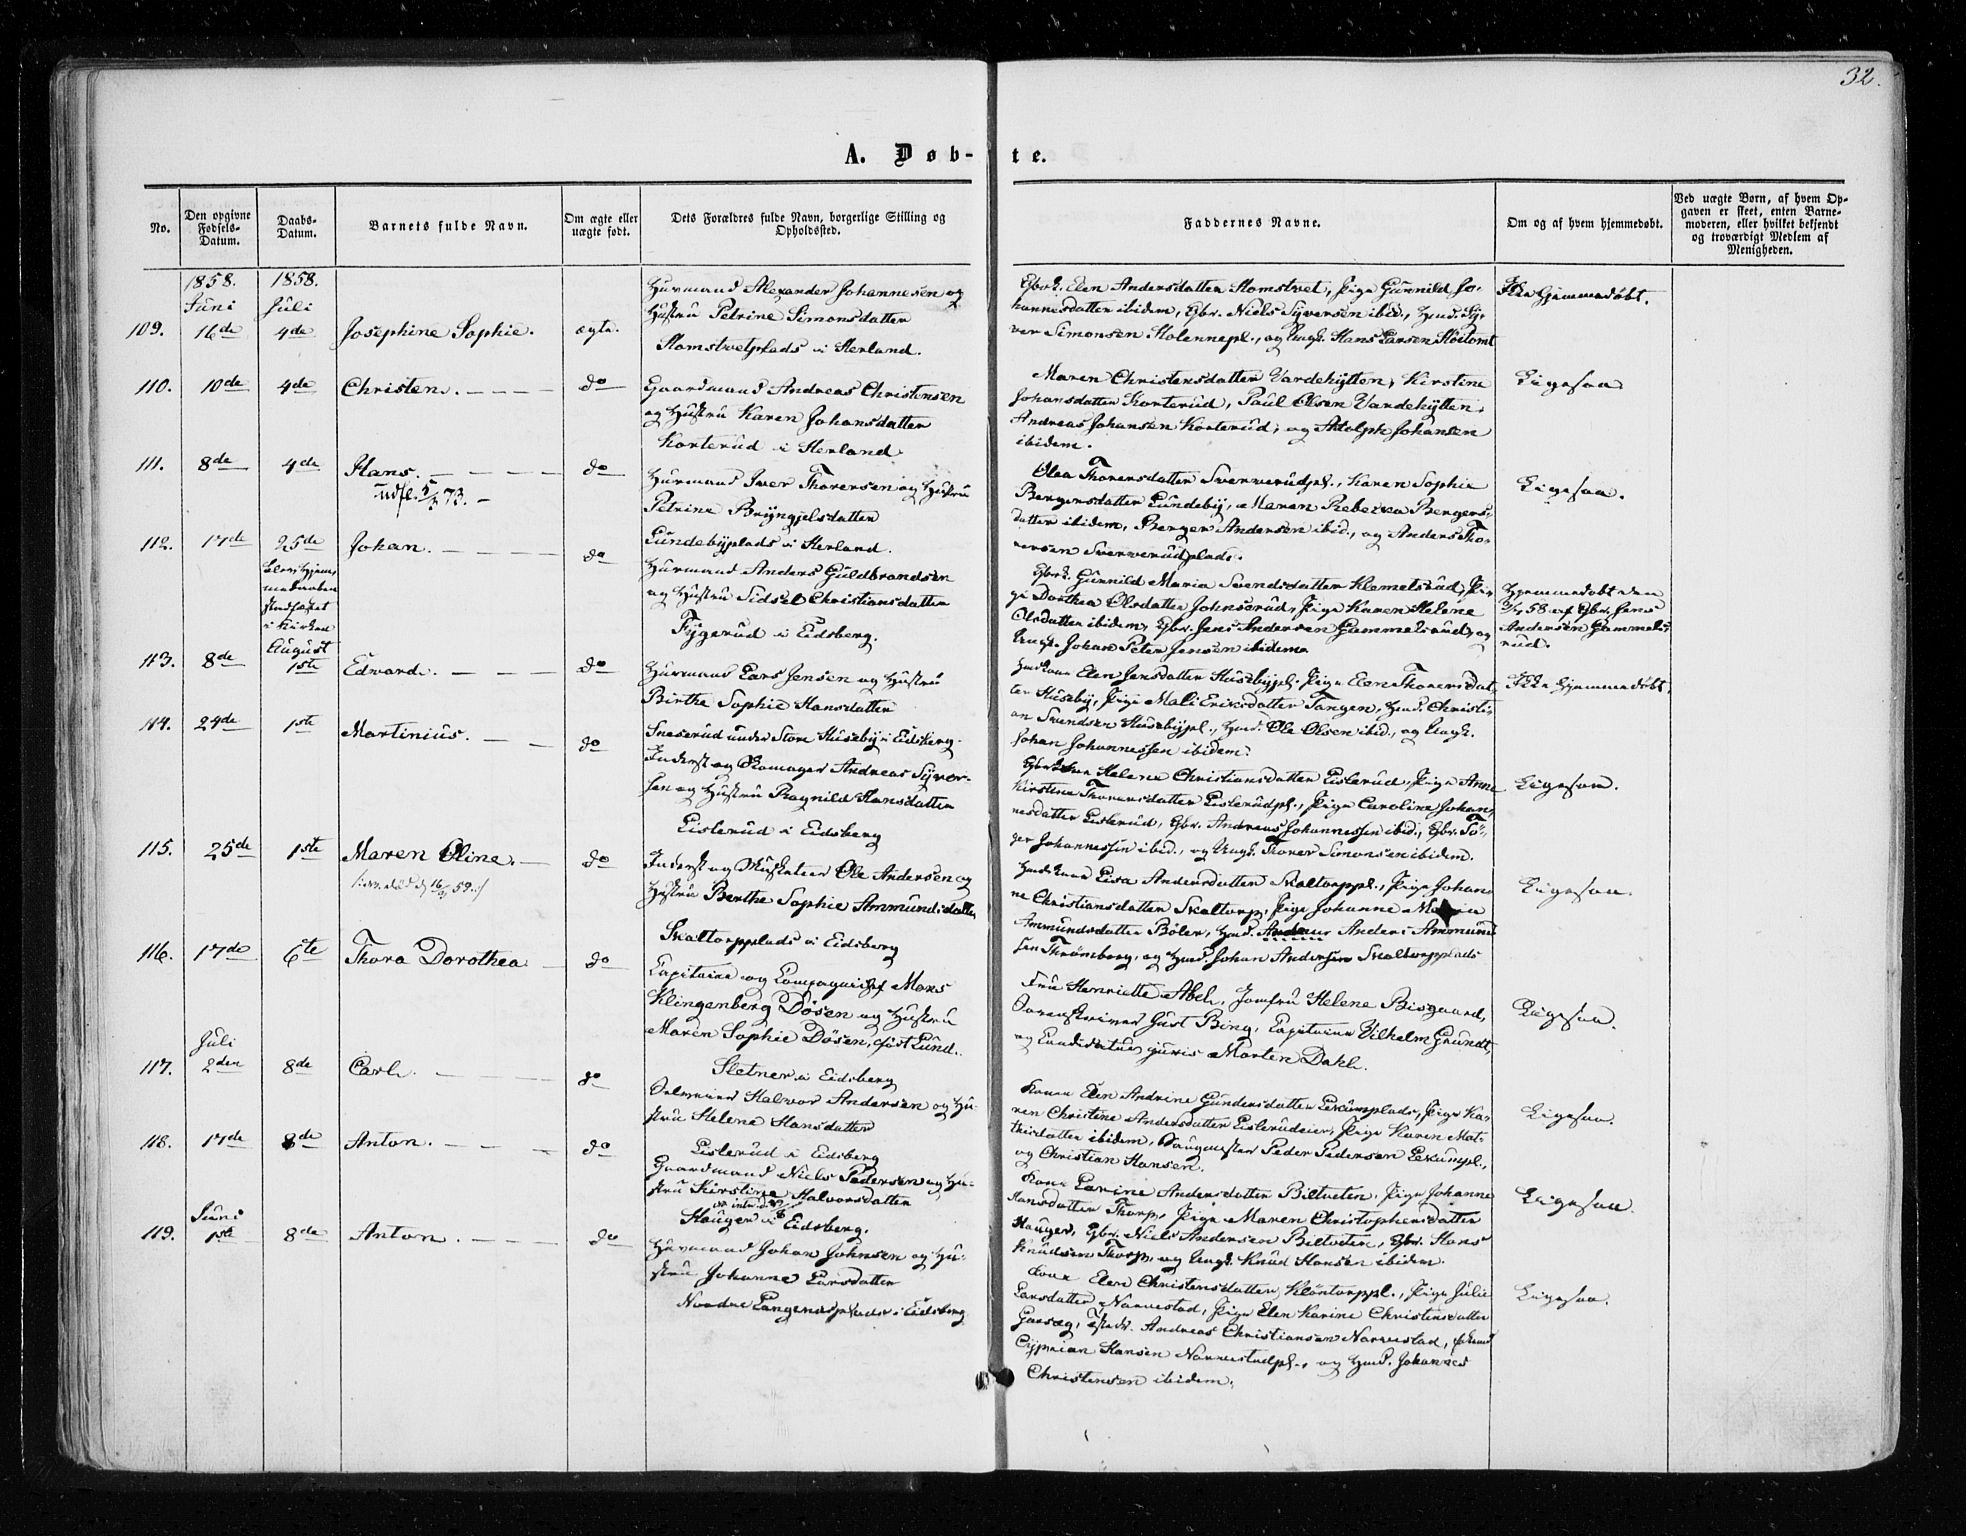 32.
A. Døb-te.
No.
Den opgivne Fødsels-Datum.
Daabs-Datum.
Barnets fulde Navn.
Om ægte eller uægte født.
Dets Forældres fulde Navn, borgerlige Stilling og Opholdssted.
Faddernes Navne.
Om og af hvem hjemmedøbt.
Ved uægte Børn, af hvem Opgaven er skeet, enten Barnemoderen, eller hvilket bekjendt og troværdigt Medlem af Menigheden.
1858. 1858.
Juni Juli
109. 16de 4de Josephine Sophie. ægte.
Huusmand Alexander Johannesen og
Hustru Petrine Simonsdatter
Homstvetplads i Herland.
Gbrk. Elen Andersdatter Homstvet, Pige Gunnild Jo-
hannesdatter ibidem, Gbr. Niels Syversen ibid., Hmd. Sy-
ver Simonsen
og Ungk. Hans Larsen
Ikke hjemmedøbt.
110. 10de 4de Christen. do
Gaardmand Andreas Christensen
og Hustru Karen Johansdatter
Korterud i Herland.
Maren Christensdatter Vardehytten, Kirstine
Johansdatter Korterud, Paul Olsen Vardehytten,
Andreas Johansen Korterud, og Adolph Johansen
ibidem.
Ligesaa
111. 8de 4de Hans. do
Udfl. 73.
Huusmand Iver Thorensen og Hustru
Petrine Bryngjelsdatter
Lundebyplads i Herland.
Olea Thorensdatter Sververudpl., Karen Sophie
Bergersdatter Lundeby, Maren Rebekka Bergers-
datter ibidem, Berger Andersen ibid., og Anders Tho-
rensen Sververudplads.
Ligesaa.
112. 17de 25de Johan. do
i Kirken
Huusmand Anders Guldbrandsen
og Hustru Sidsel Christiansdatter
Tygerud i Eidsberg.
Gbrk. Gunnild Maria Svendsdatter Klemetsrud, Pi-
ge Dorthea Olsdatter Johnsrud, Pige Karen Helene
Olsdatter ibidem, Gbr. Jens Andersen Gammelsrud, og
Ungk. Johan Peter Jensen ibidem.
Hjemmedøbt den
58 af Gbr. Jens
Andersen Gammels-
rud.
August
113. 8de 1ste Edvard. do
Huusmand Lars Jensen og Hustru
Birthe Sophie Hansdatter
Sneserud under Store Huseby i Eidsberg.
Elen Jensdatter Husebypl., Pige Elen Thorensdat-
ter Huseby, Pige Mali Eriksdatter Tangen, Hmd. Christi-
an Svendsen Husebypl., Hmd. Ole Olsen ibid., og Ungk.
Johan Johannessen ibidem.
Ikke hjemmedøbt.
114. 24de 1ste Martinius. do
Inderst og Skomager Andreas Syver-
sen og Hustru Ragnild Hansdatter
Lislerud i Eidsberg
Helene Christiansdatter Lislerud, Pige Anne
Kirstine Thorensdatter Lislerudpl., Pige Caroline Johan-
nesdatter Lislerud, Gbr. Andreas Johannessen ibid., Gbr. Tø-
ger Johannessen ibid., og Ungk. Thorer Simonsen ibidem.
Ligesaa.
115. 25de 1ste Maren Oline. do
/: død d. 16/ 59. :/
Inderst og Musketeer Ole Andersen og
Hustru Berthe Sophie Ammundsdatter
Skaltorpplads i Eidsberg
Hmdkone Lisa Andersdatter Skaltorppl., Pige Johan-
ne Christiansdatter Skaltorp, Pige Johanne Maria
Ammundsdatter Böler, Hmd. Anders Ammund-
sen Thrömborg, og Hmd. Johan Andersen Skaltorpplads
Ligesaa.
116. 17de 6te Thora Dorothea. do
Capitaine og Compagnichef Mons
Klingenberg Dösen og Hustru
Maren Sophie Dösen, født Lund.
Sletner i Eidsberg
Fru Henriette Abel, Jomfru Helene Bisgaard,
Just Bing, Capitaine Vilhelm Grundt,
og Candidatus juris Morten Dahl.
Ligesaa.
Juli
117. 2den 8de Carl. do
Halvor Andersen og Hu-
stru Helene Hansdatter
Lislerud i Eidsberg
Kone Elen Andrine Gundersdatter Lekumplads, Pige Ka-
ren Christine Andersdatter Lislerudeier, Pige Karen Mat-
hisdatter ibidem, Peder Pedersen Lekumpl.,
og Christian Hansen.
Ligesaa.
118. 17de 8de Anton. do
Gaardmand Niels Pedersen og Hu-
stru Kirstine Halvorsdatter
Hauger i Eidsberg.
Kone Larine Andersdatter Biltveten, Pige Johanne
Hansdatter Thorp, Pige Maren Christophersdatter
Hauger, Gbr. Niels Andersen Biltveten, Gbr. Hans
Knudsen Thorp, og Ungk. Knud Hansen ibidem.
Ligesaa.
Juni
119. 1ste 8de Anton. do
Huusmand Johan Johnsen og Hu-
stru Johanne Larsdatter
Nordre Langenæsplads i Eidsberg
Kone Elen Christensdatter Kløntorppl., Pige Julie
Larsdatter Narvestad, Pige Elen Karine Christensdatter
Garseg, Andreas Christiansen Narvestad,
Cyprian Hansen Narvestadpl., og Hmd. Johannes
Christensen ibidem.
Ligesaa.